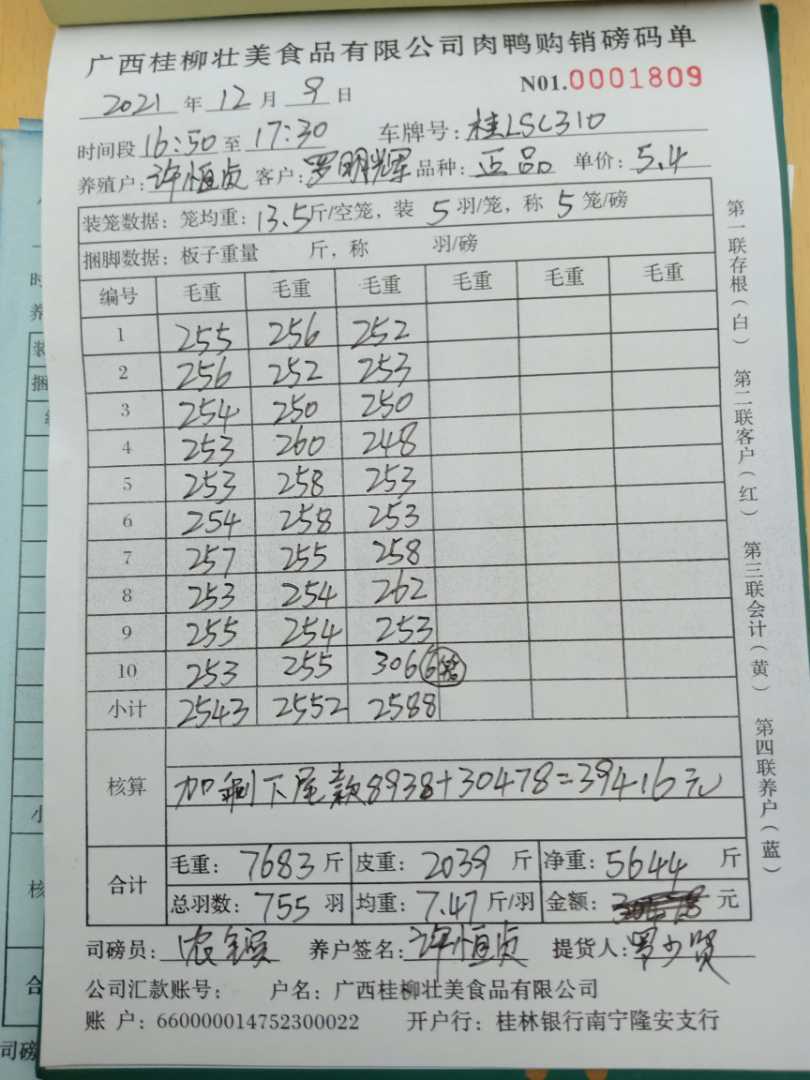 广西桂柳壮美食品有限公司肉鸭购销磅码单
2021年12月9日 N01.0001809
时间段16:50至17:30 车牌号:桂LSC310
养殖户:许恒贞 客户:罗明辉 品种:正品 单价:5.4
装笼数据:笼均重:13.5斤/空笼,装5羽/笼,称5笼/磅
捆脚数据:板子重量 斤,称 羽/磅
编号 毛重 毛重 毛重 毛重 毛重 毛重
1 255 256 252
2 256 252 253
3 254 250 250
4 253 260 248
5 253 258 253
6 254 258 253
7 257 255 258
8 253 254 262
9 255 254 253
10 253 255 306 6笼
小计 2543 2552 2588
核算 加剩下尾款8938+30478=39416元
合计 毛重:7683斤 皮重:2039斤 净重:5644斤
总羽数:755羽 均重:7.47斤/羽 金额: 元
司磅员: 养户签名:许恒贞 提货人:罗少贤
公司汇款账号: 户名:广西桂柳壮美食品有限公司
账 户:660000014752300022 开户行:桂林银行南宁隆安支行
第一联存根(白) 第二联客户(红) 第三联会计(黄) 第四联养户(蓝)